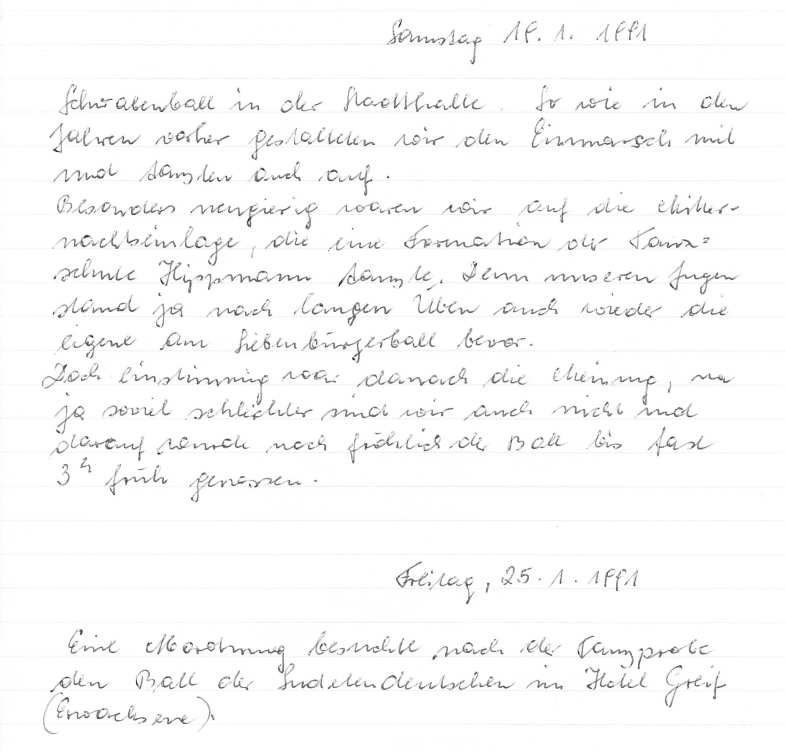 Samstag 19. 1. 1991
Schwabenball in der Stadthalle. So wie in den
Jahren vorher gestalteten wir den Einmarsch mit
und tanzten auch auf.
Besonders neugierig waren wir auf die Mitter-
nachtseinlage, die eine Formation der Tanz=
schule Hippmann tanzte. Denn unseren Jugen
stand ja nach langen Üben auch wieder die
eigene am Siebenbürgerball bevor.
Doch einstimmig war danach die Meinung, na
ja soviel schlechter sind wir auch nicht und
darauf wurde noch fröhlich der Ball bis fast
3h früh genossen.
Freitag, 25. 1. 1991
Eine Abordnung besuchte nach der Tanzprobe
den Ball der Sudetendeutschen im Hotel Greif
(Erwachsene).